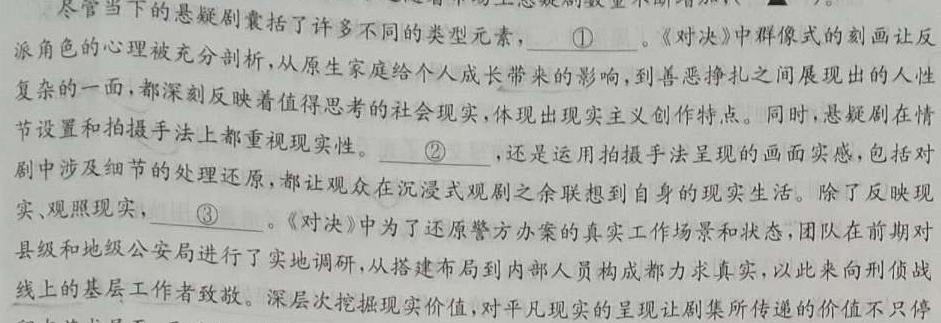 尽管当下的悬疑剧囊括了许多不同的类型元素,  ①  。《对决》中群像式的刻画让反
派角色的心理被充分剖析,从原生家庭给个人成长带来的影响,到善恶挣扎之间展现出的人性
复杂的一面,都深刻反映着值得思考的社会现实,体现出现实主义创作特点。同时,悬疑剧在情
节设置和拍摄手法上都重视现实性。  ②  ,还是运用拍摄手法呈现的画面实感,包括对
剧中涉及细节的处理还原,都让观众在沉浸式观剧之余联想到自身的现实生活。除了反映现
实、观照现实,  ③  。《对决》中为了还原警方办案的真实工作场景和状态,团队在前期对
县级和地级公安局进行了实地调研,从搭建布局到内部人员构成都力求真实,以此来向刑侦战
线上的基层工作者致敬。深层次挖掘现实价值,对平凡现实的呈现让剧集所传递的价值不只停